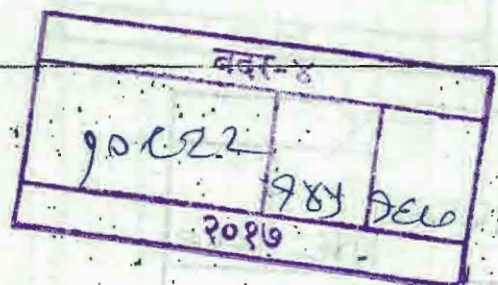 बदर-४
१०८२२ १४५
२०१७